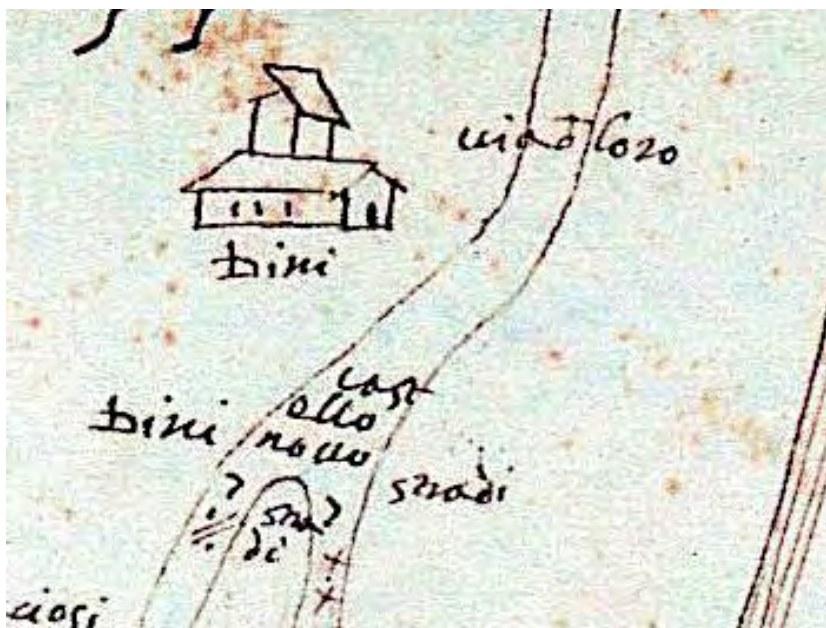 uia d loro
Dini
Cast
ello
nouo
Dini
stradi
stra
di
ciosi